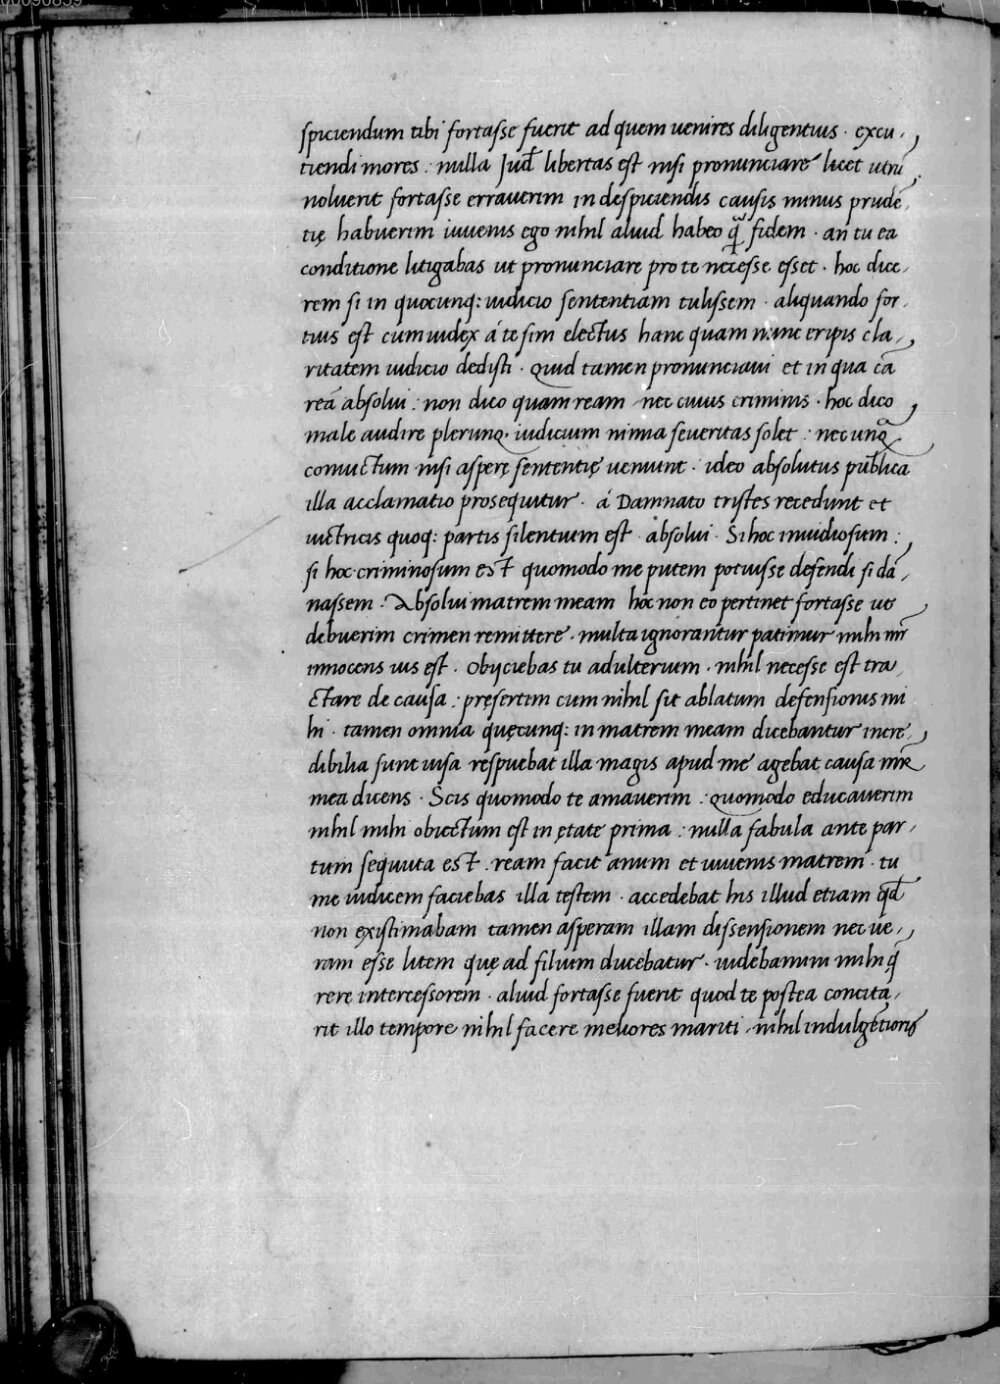 00090839
spiciendum tibi fortasse fuerit ad quem uenires diligentius · excu,
tiendi mores : nulla Jud̄ libertas est nisi pronunciare licet utrū
noluerit fortasse errauerim in despiciendis causis minus prudē,
tię habuerim iuuenis ego nihil aliud habeo q̄ fidem · an tu ea
conditione litigabas ut pronunciare pro te necesse esset · hoc dice,
rem si in quocunq: iudicio sententiam tulissem · aliquando for,
tius est cum iudex á te sim electus hanc quam nunc eripis cla,
ritatem iudicio dedisti · Quid tamen pronunciaui et in qua cā
reā absolui : non dico quam ream nec cuius criminis · hoc dico
male audire plerunq· iudicium nimia seueritas solet : nec unq̄
conuictum nisi asperę sententię ueniunt · ideo absolutus publica
illa acclamatio prosequitur · á Damnato tristes recedunt et
uictricis quoq: partis silentium est · absolui · Si hoc inuidiosum :
si hoc criminosum est quomodo me putem potuisse defendi si dā,
nassem · Absolui matrem meam hoc non eo pertinet fortasse ut
debuerim crimen remittere · multa ignorantur patimur mihi mr̄
innocens uis est · Obijciebas tu adulterium · nihil necesse est tra,
ctare de causa : pręsertim cum nihil sit ablatum defensionis mi
hi · tamen omnia quęcunq: in matrem meam dicebantur incre,
dibilia sunt uisa respuebat illa magis apud me agebat causa mr̄
mea dicens · Scis quomodo te amauerim · quomodo educauerim
nihil mihi obiectum est in ętate prima : nulla fabula ante par,
tum sequuta est · ream facit anum et iuuenis matrem · tu
me iudicem faciebas illa testem · accedebat his illud etiam qd̄
non existimabam tamen asperam illam dissensionem nec ue,
ram esse litem quę ad filium ducebatur · uidebamini mihi q̄
rere intercessorem · aliud fortasse fuerit quod te postea concita,
rit illo tempore nihil facere meliores mariti · nihil indulgētioris